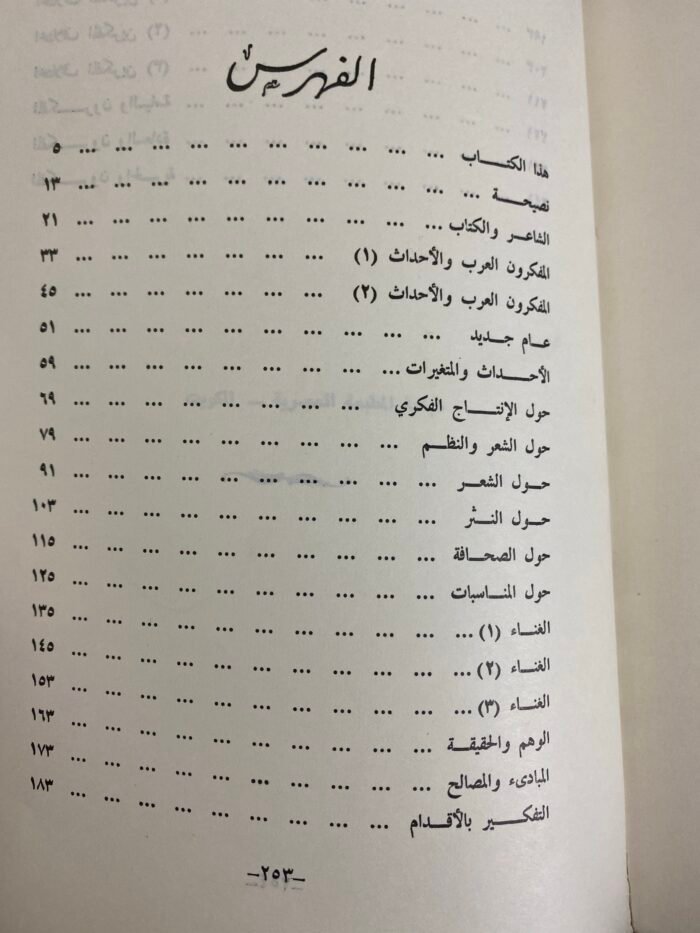 الفهرس
هذا الكتـــاب ... ... ... ... ... ... ... ... ... ... ٥
نصيحـــة ... ... ... ... ... ... ... ... ... ... ... ١٣
الشاعـر والكتاب ... ... ... ... ... ... ... ... ... ... ٢١
المفكرون العرب والأحداث (١) ... ... ... ... ... ... ... ٣٣
المفكرون العرب والأحداث (٢) ... ... ... ... ... ... ... ٤٥
عـــام جـــديد ... ... ... ... ... ... ... ... ... ... ٥١
الأحـــداث والمتغيرات ... ... ... ... ... ... ... ... ... ٥٩
حول الإنتـاج الفكري ... ... ... ... ... ... ... ... ٦٩
حول الشعر والنظـم ... ... ... ... ... ... ... ... ... ٧٩
حـــول الشعـــر ... ... ... ... ... ... ... ... ... ... ٩١
حـــول النـــثر ... ... ... ... ... ... ... ... ... ... ١٠٣
حول الصحـافة ... ... ... ... ... ... ... ... ... ... ١١٥
حول المنـــاسبات ... ... ... ... ... ... ... ... ... ... ١٢٥
الغنـــاء (١) ... ... ... ... ... ... ... ... ... ... ... ١٣٥
الغنـــاء (٢) ... ... ... ... ... ... ... ... ... ... ... ١٤٥
الغنـــاء (٣) ... ... ... ... ... ... ... ... ... ... ... ١٥٣
الوهم والحقيقـــة ... ... ... ... ... ... ... ... ... ... ١٦٣
المبادىء والمصالح ... ... ... ... ... ... ... ... ... ... ١٧٣
التفكـــير بالأقـدام ... ... ... ... ... ... ... ... ... ١٨٣
–٢٥٣–